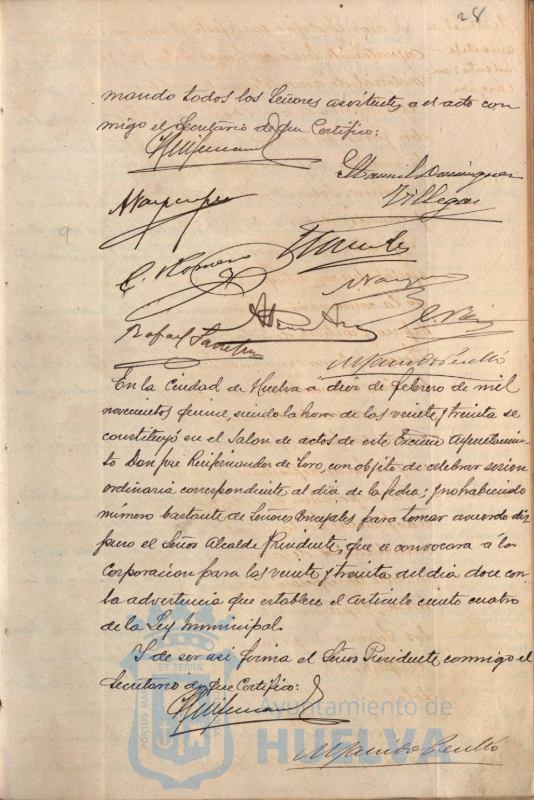 28
mando todos los Señores asistentes a el acto con
migo el Secretario de que Certifico:
Manuel Dominguez
Villegas
C. Romero
Rafael Sanchez
En la Ciudad de Huelva á diez de febrero de mil
novecientos quince, siendo la hora de las veinte y treinta se
constituyó en el Salon de actos de este Excmo Ayuntamien
to Don José de Toro, con objeto de celebrar sesion
ordinaria correspondiente al dia de la fecha; y no habiendo
número bastante de Señores Concejales para tomar acuerdo dis
puso el Señor Alcalde Presidente, que se convocara á la
Corporacion para las veinte y treinta del dia doce con
la advertencia que establece el Articulo ciento cuatro
de la Ley Municipal.
Y de ser asi firma el Señor Presidente, conmigo el
Secretario de que Certifico:
PORTUS MARIS ET TERRÆ
Ayuntamiento de
HUELVA